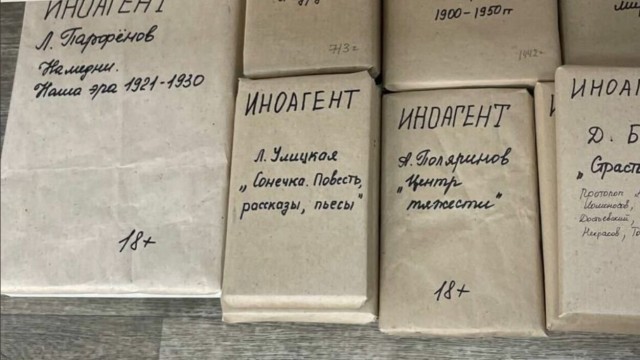 ИНОАГЕНТ
Л. Парфёнов
Намедни.
Наша эра 1921-1930
18+
713 г
1900-1950 гг
1442 г
ИНОАГЕНТ
Л. Улицкая
„Сонечка. Повесть,
рассказы, пьесы"
ИНОАГЕНТ
А. Поляринов
„Центр
тяжести"
18+
ИНОАГ
Д. Б
„Страст
Протопоп
Некрасов, То